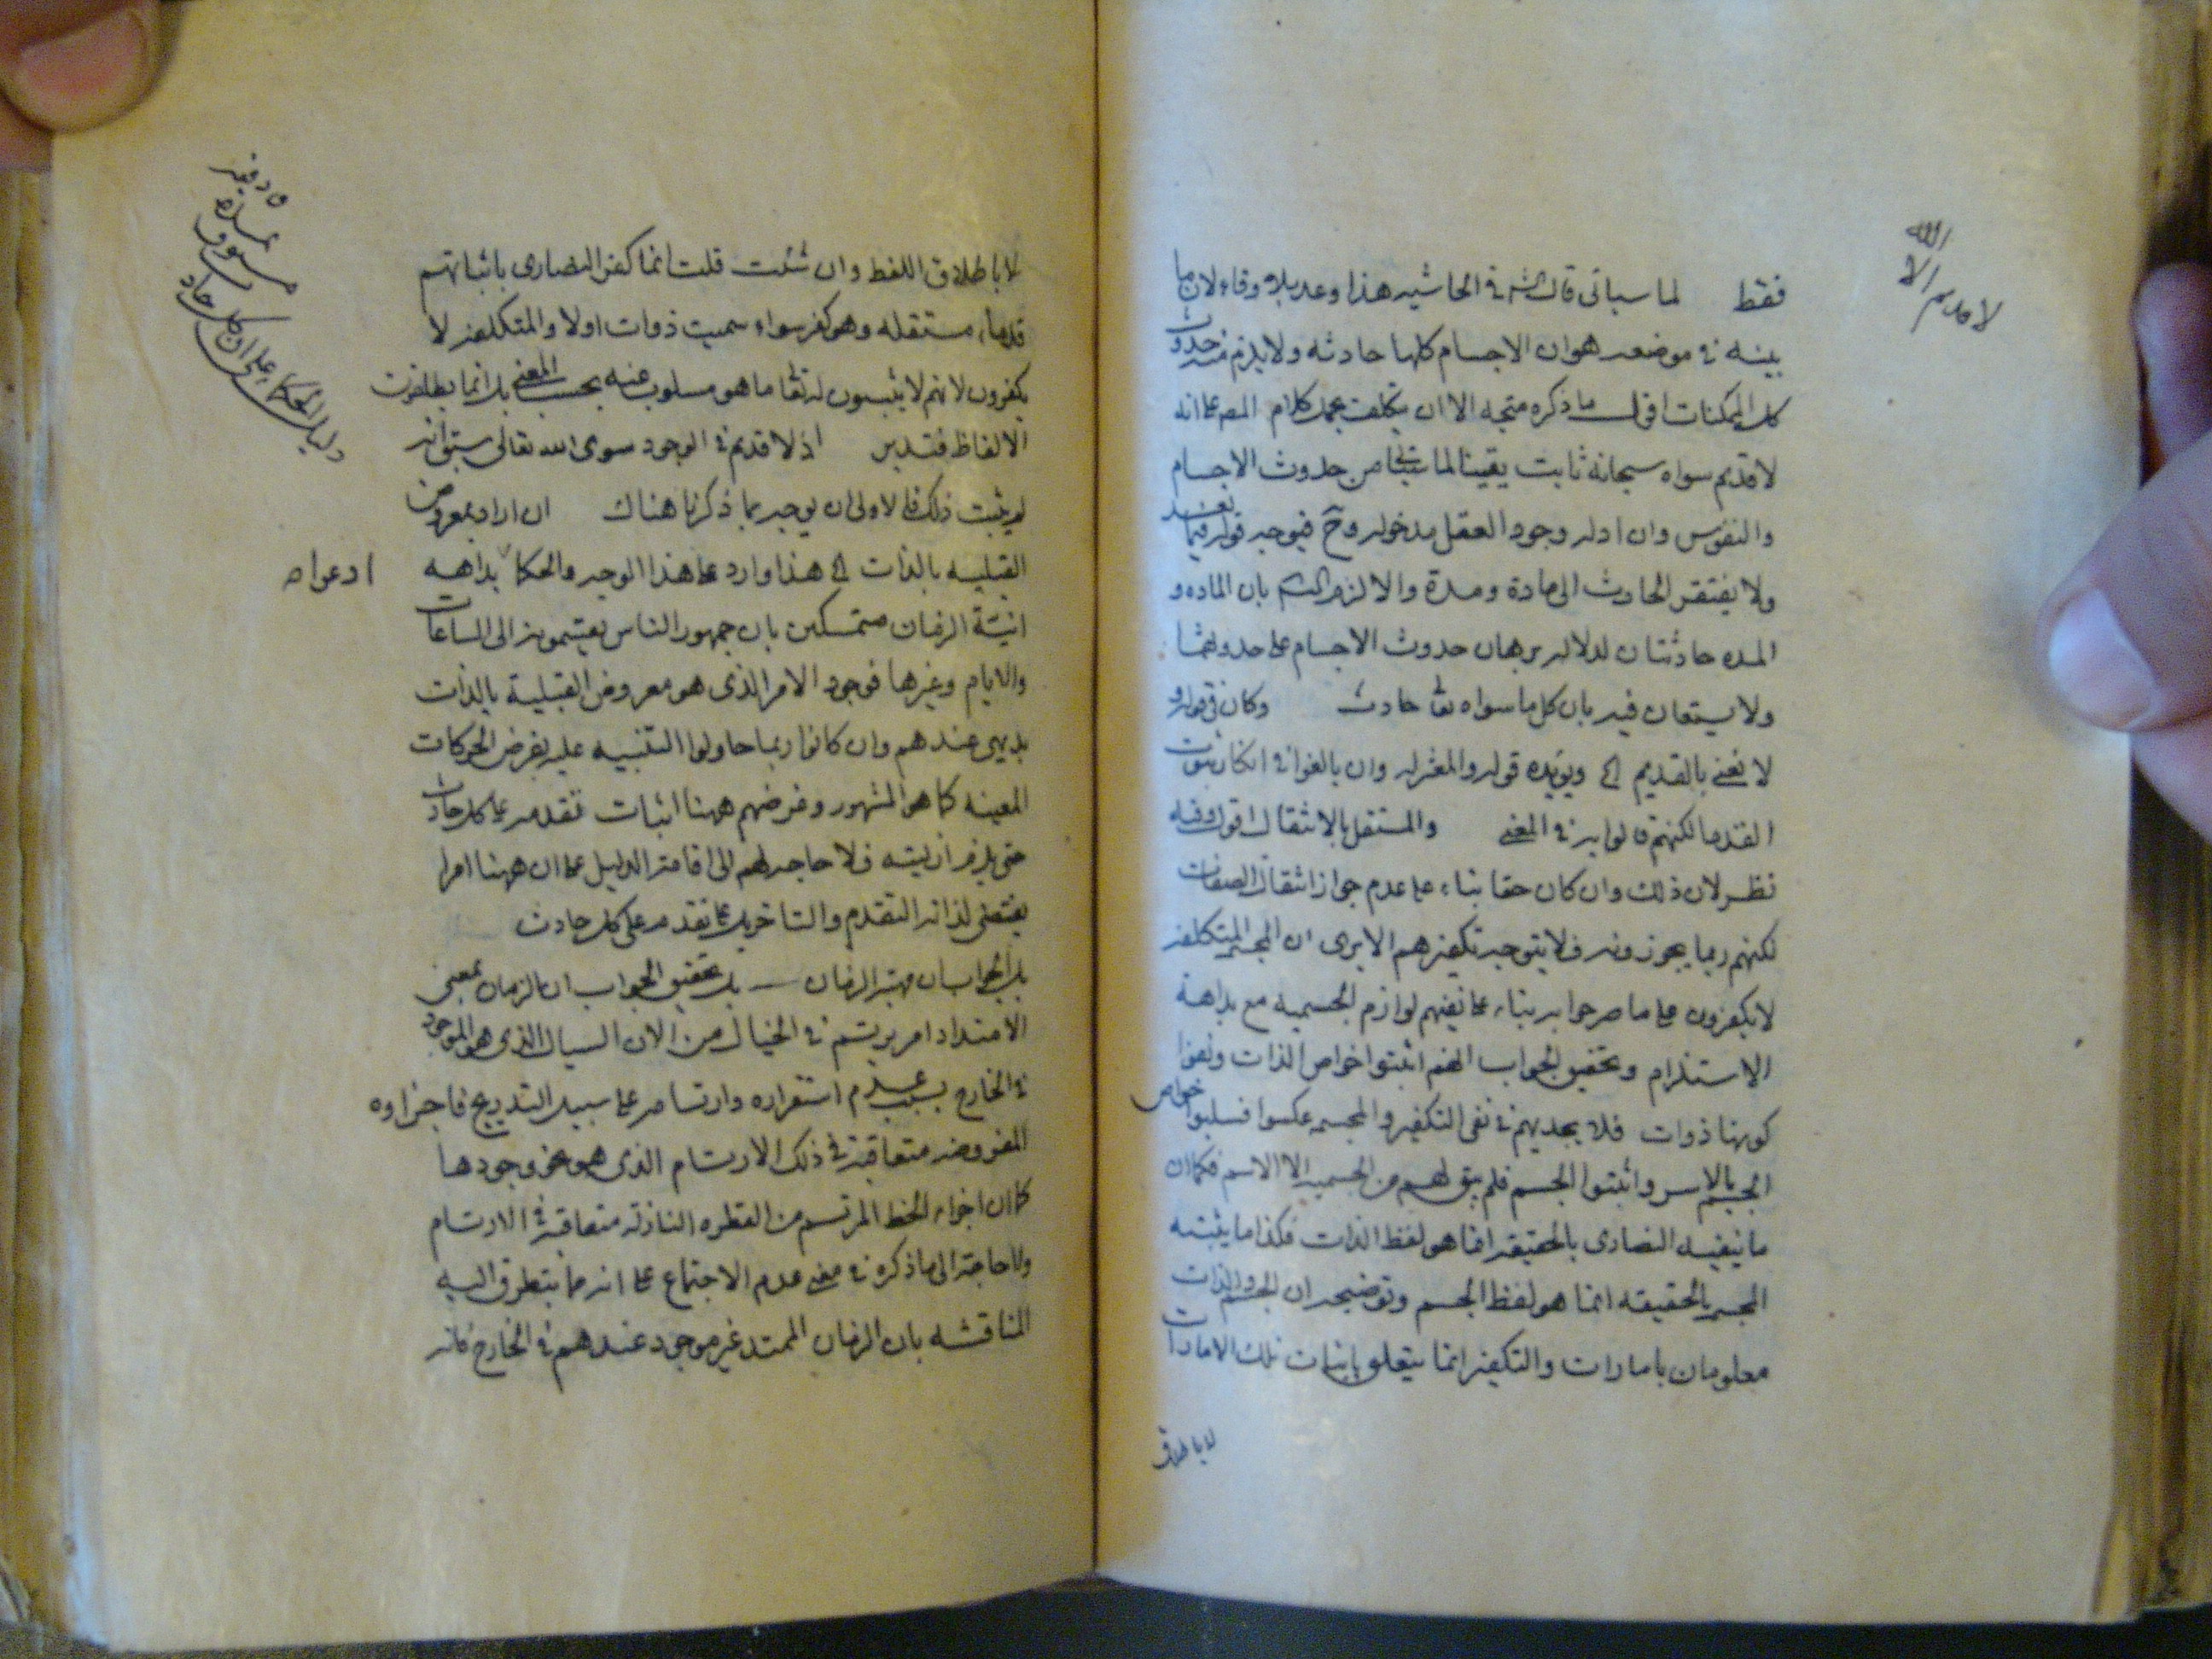 الله
الا
لا قديم
فقط لما سياتى قال الشم فى الحاشيه هذا وعد بلا وفاء لان ما
بينه فى موضعه هو ان الاجسام كلها حادثه ولا يلزم منه حدوث
كل الممكنات اقول ما ذكره متجه الا ان يتكلف بحمل كلام المص على انه
لا قديم سواه سبحانه ثابت يقينا لما من حدوث الاجسام
والنفوس وان ادله وجود العقل مدخوله وح فيوجه قوله فيما بعد
ولا يفتقر الحادث الى مادة ومدة والا لزم التسم بان الماده و
المده حادثتان لدلاله برهان حدوث الاجسام على حدوثهما
ولا يستعان فيه بان كل ما سواه تعالى حادث وكان فى قوله و
لا نعنى بالقديم الخ ويؤيده قوله والمعتزله وان بالغوا فى انكار ثبوت
القدما لكنهم قالوا به فى المعنى والمستقل بالانتقال اقول وفيه
نظر لان ذلك وان كان حقا بناء على عدم جواز انتقال الصفات
لكنهم ربما يجوزونه فلا يتوجه تكفيرهم الا يرى ان المجسم المتكلفة
لا يكفرون على ما صرحوا به بناء على نفيهم لوازم الجسميه مع بداهة
الاستلزام وتحقيق الجواب انهم اثبتوا خواص الذات ونفوا
كونها ذوات فلا يجديهم فى نفى التكفير والمجسمه عكسوا فسلبوا خواص
الجسم بالاسر واثبتوا الجسم فلم يبق لهم من الجسميه الا الاسم فكما ان
ما ينفيه النصارى بالحقيقه انما هو لفظ الذات فكذا ما يثبته
المجسم بالحقيقه انما هو لفظ الجسم وتوضيحه ان الجسم والذات
معلومان بامارات والتكفير انما يتعلق باثبات تلك الامارات
لا باطلاق
لا باطلاق اللفظ وان شئت قلت انما كفر النصارى باثباتهم
قدماء مستقله وهو كفر سواء سميت ذوات اولا والمتكلفه لا
يكفرون لانهم لا يثبتون له تعالى ما هو مسلوب عنه بحسب المعنى بل انما يطلقون
الالفاظ فتدبر اذ لا قديم فى الوجود سوى الله تعالى سبق انه
لم يثبت ذلك فالاولى ان يوجه بما ذكرنا هناك ان اراد بمعروض
القبليه بالذات الخ هذا وارد على هذا الوجه والحكما بداهه
ادعوا ص
انية الزمان متمسكين بان جمهور الناس يقسمونه الى الساعات
والايام وغيرها فوجود الامر الذى هو معروض القبلية بالذات
بديهى عندهم وان كانوا ربما حاولوا التنبيه عليه بفرض الحركات
المعينه كما هو المشهور وغرضهم ههنا اثبات تقدمه على كل حادث
حتى يلزم ازليته فلا حاجه لهم الى اقامة الدليل على ان ههنا امرا
يقتضى لذاته التقدم والتاخر بل على تقدمه على كل حادث
بل الجواب ان مهية الزمان بل تحقيق الجواب ان الزمان بمعنى
الامتداد امر يرتسم فى الخيال من الان السيال الذى هو الموجود
فى الخارج بسبب عدم استقراره وارتسامه على سبيل التدريج فاجزاوه
المفروضه متعاقبة فى ذلك الارتسام الذى هو نحو وجودها
كما ان اجزاء الخط المرتسم من القطره النازلة متعاقبة فى الارتسام
ولا حاجة الى ما ذكره فى معنى عدم الاجتماع على انه مما يتطرق اليه
المناقشه بان الزمان الممتد غير موجود عندهم فى الخارج فانه
دليل الحكما على ان كل حادث
مسبوق
بمدة